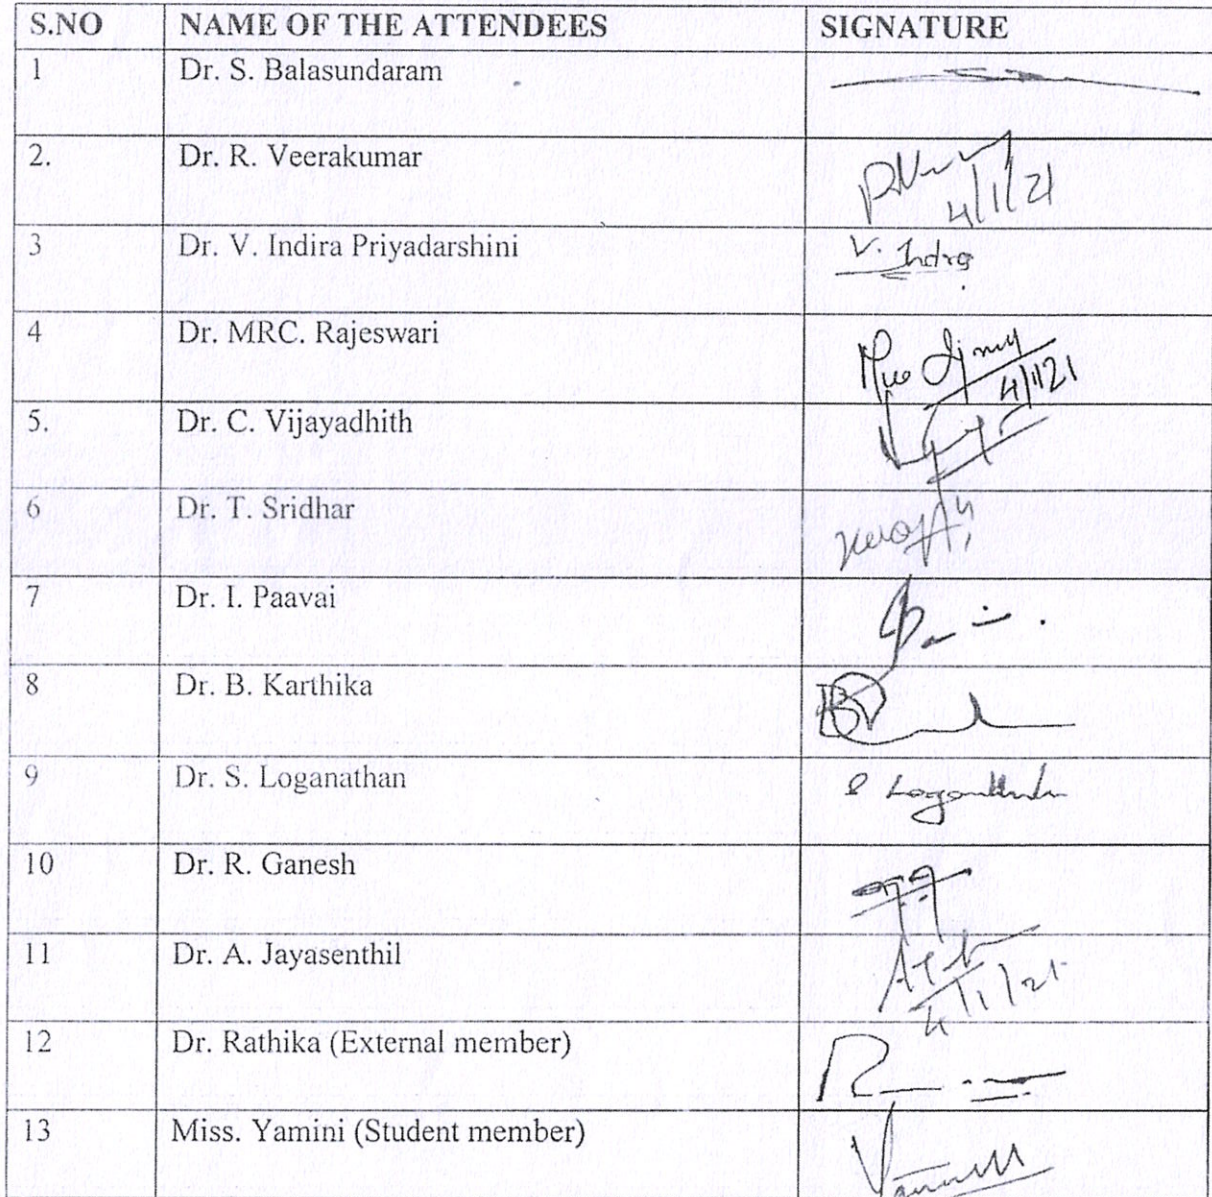 S.NO NAME OF THE ATTENDEES SIGNATURE
1 Dr. S. Balasundaram
2. Dr. R. Veerakumar
4/1/21
3 Dr. V. Indira Priyadarshini V. Indra
4 Dr. MRC. Rajeswari
4/1/21
5. Dr. C. Vijayadhith
6 Dr. T. Sridhar
7 Dr. I. Paavai
8 Dr. B. Karthika
9 Dr. S. Loganathan S Loganathan
10 Dr. R. Ganesh
11 Dr. A. Jayasenthil
4/1/21
12 Dr. Rathika (External member)
13 Miss. Yamini (Student member)